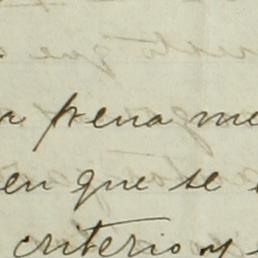 pena me
en que se
criterio y